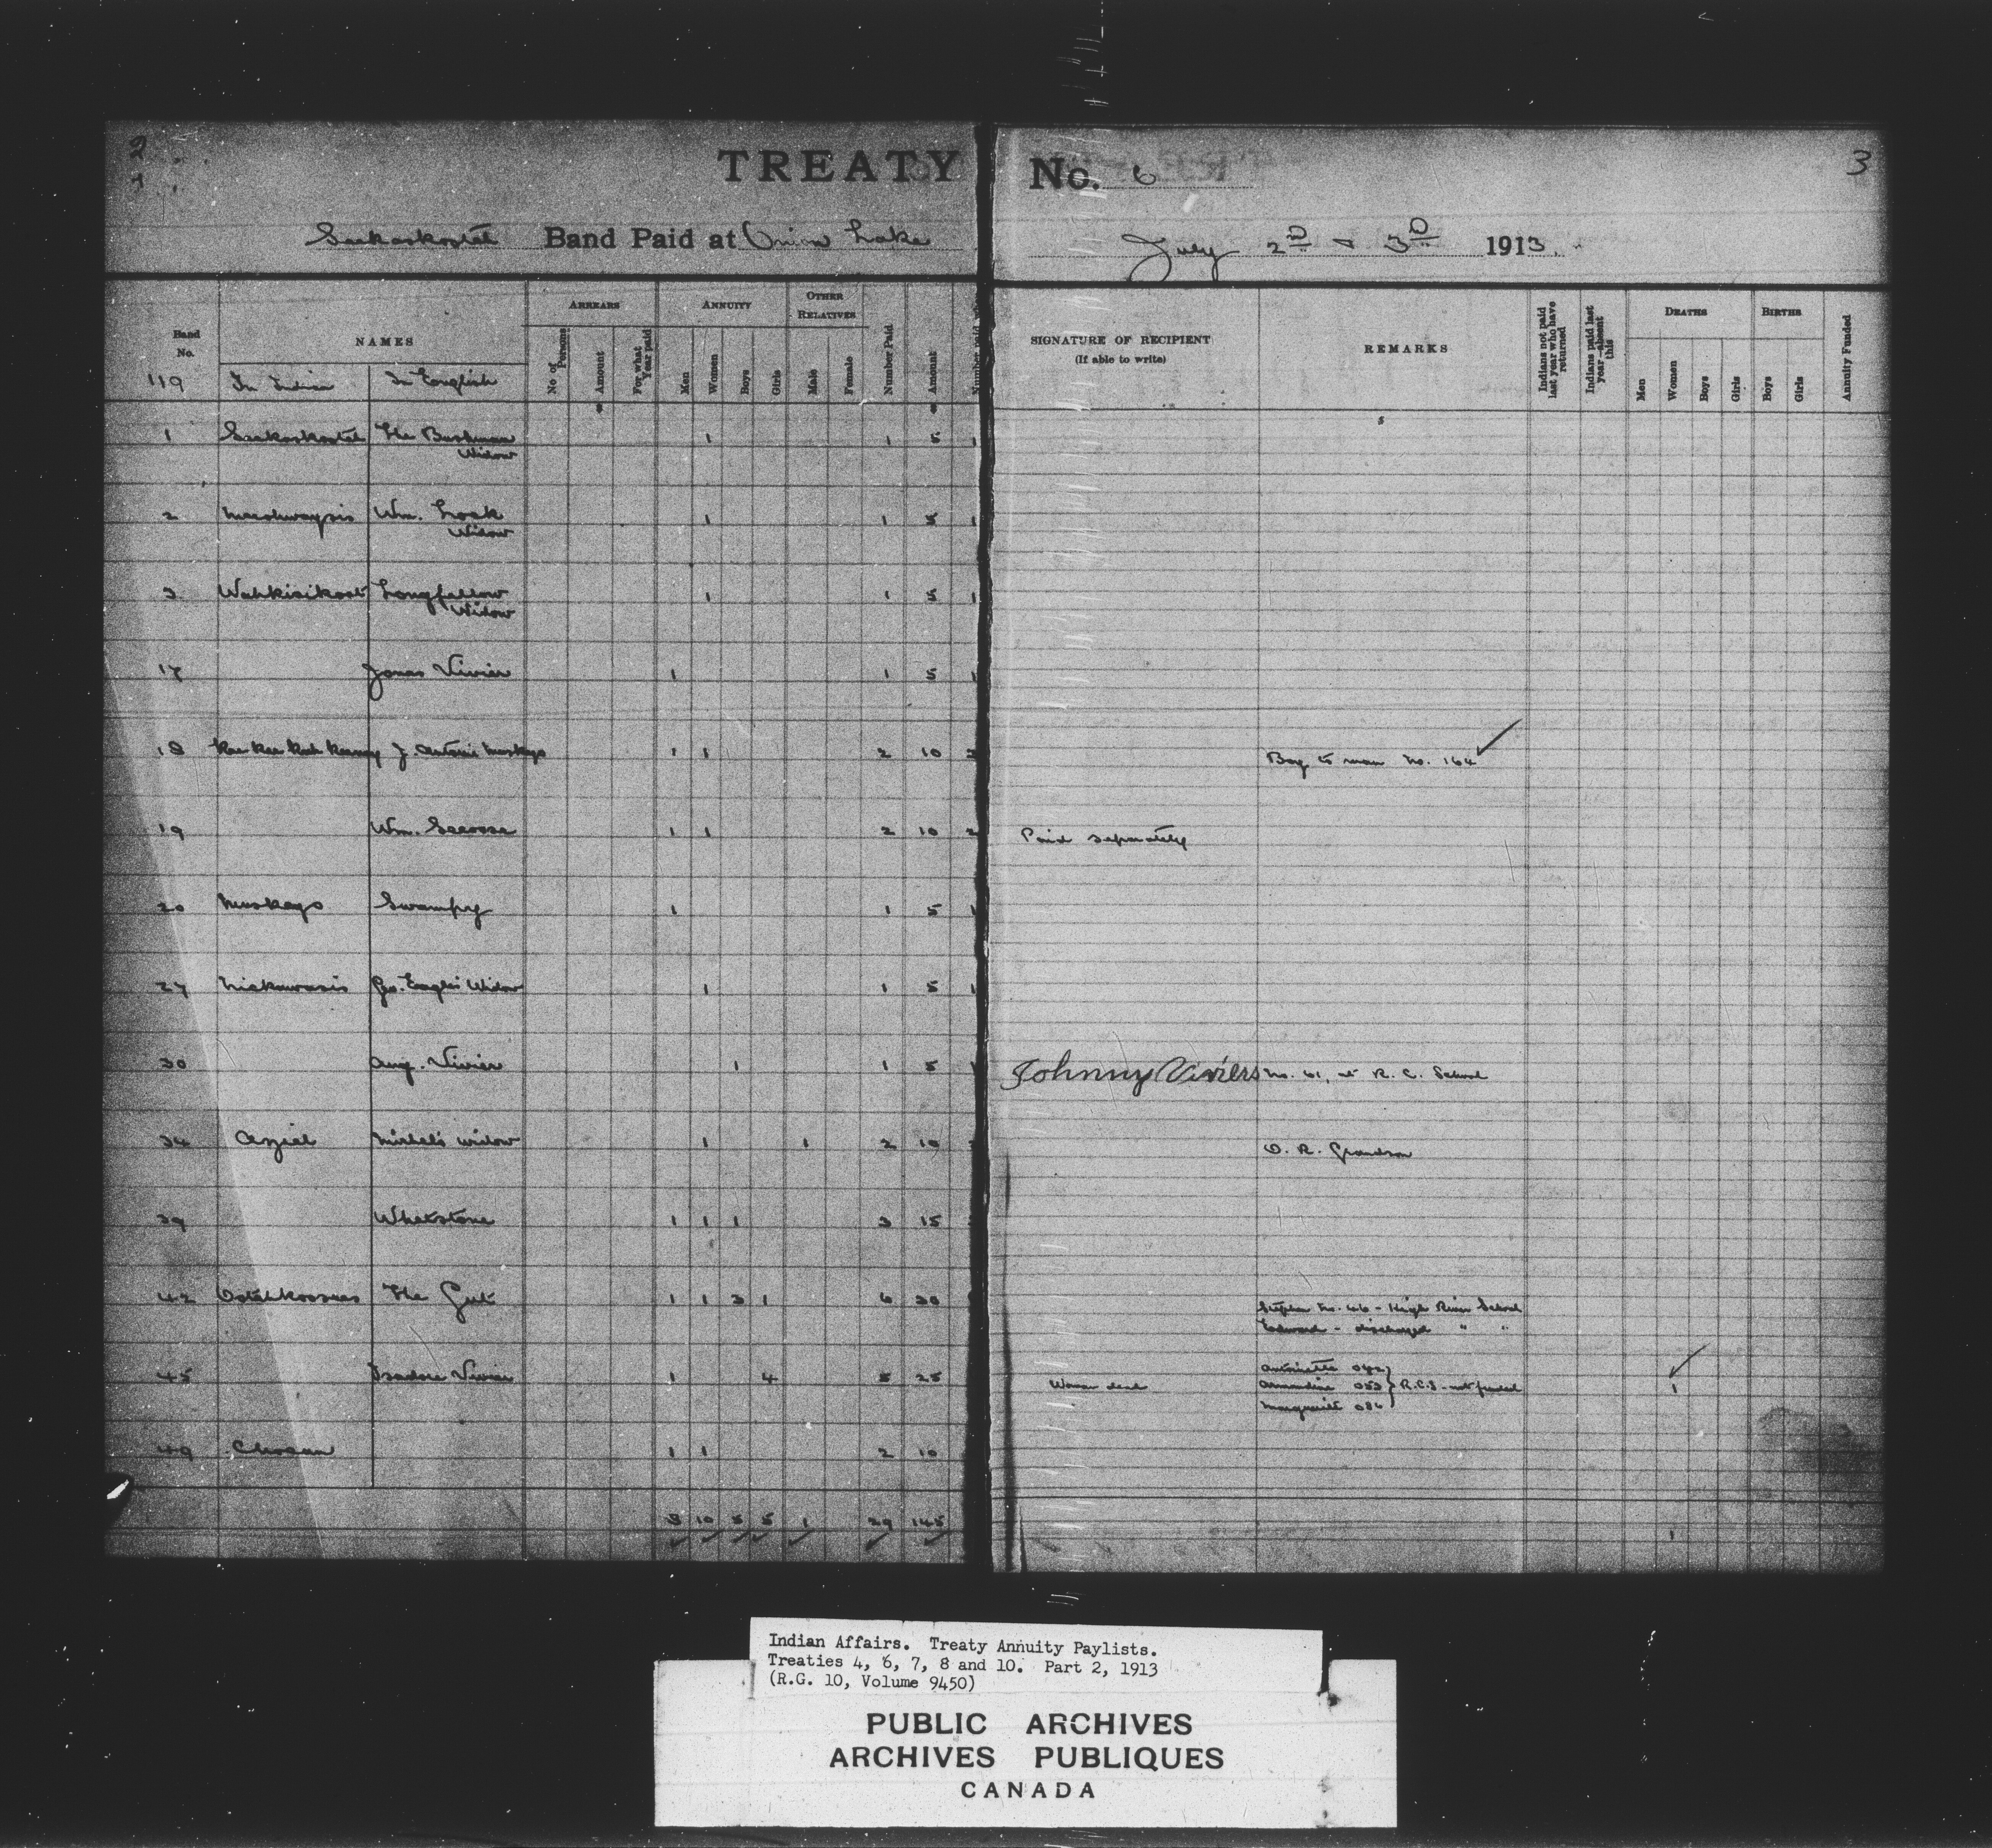 2
3
TREATY No. 6
Seekaskootch Band Paid at Onion Lake July 2D & 3D 1913.
Band No.
NAMES
ARREARS
ANNUITY
OTHER RELATIVES
No of Persons
Amount
For what Year paid
Men
Women
Boys
Girls
Male
Female
Number Paid
Amount
SIGNATURE OF RECIPIENT
(If able to write)
REMARKS
Indians not paid last year who have returned
Indians paid last year—absent this
DEATHS
Men
Women
Boys
Girls
BIRTHS
Boys
Girls
Annuity Funded
119 In Indian In English
1 The Bushman 1 1 5 1
Widow
2 Wm. Look 1 1 5 1
Widow
3 Wahkisikoot Longfellow 1 1 5 1
Widow
17 Jonas Vivier 1 1 5 1
18 J. Antoine Muskego 1 1 2 10 2 Boy to man No. 164
19 Wm. 1 1 2 10 2 Paid separately
20 Muskego Swampy 1 1 5 1
27 Niskawasis Geo. Eagle's Widow 1 1 5 1
30 Aug. Vivier 1 1 5 1 Johnny Viviers No. 61, at R. C. School
34 Michel's widow 1 1 2 10 O. R. Grandson
39 Whetstone 1 1 1 3 15
42 The Gut 1 1 3 1 6 30
Stephen No. 46 - High River School
Edward - discharged " "
45 Isadore Vivier 1 4 5 25 Woman dead 1
Antoinette 042
Armandine 053 } R.C.S - not funded
Marguerite 086
49 1 1 2 10
8 10 5 5 1 29 145 1
Indian Affairs. Treaty Annuity Paylists.
Treaties 4, 6, 7, 8 and 10. Part 2, 1913
(R.G. 10, Volume 9450)
PUBLIC ARCHIVES
ARCHIVES PUBLIQUES
CANADA